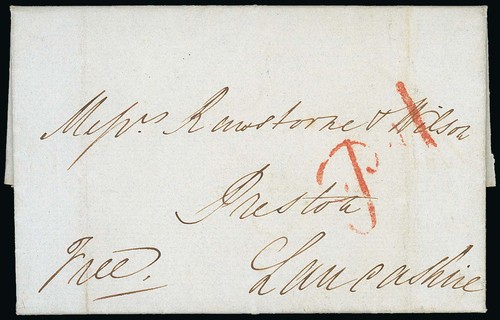 Messrs. Rawstorne & Wilson
P.1
Preston
Free. Lancashire